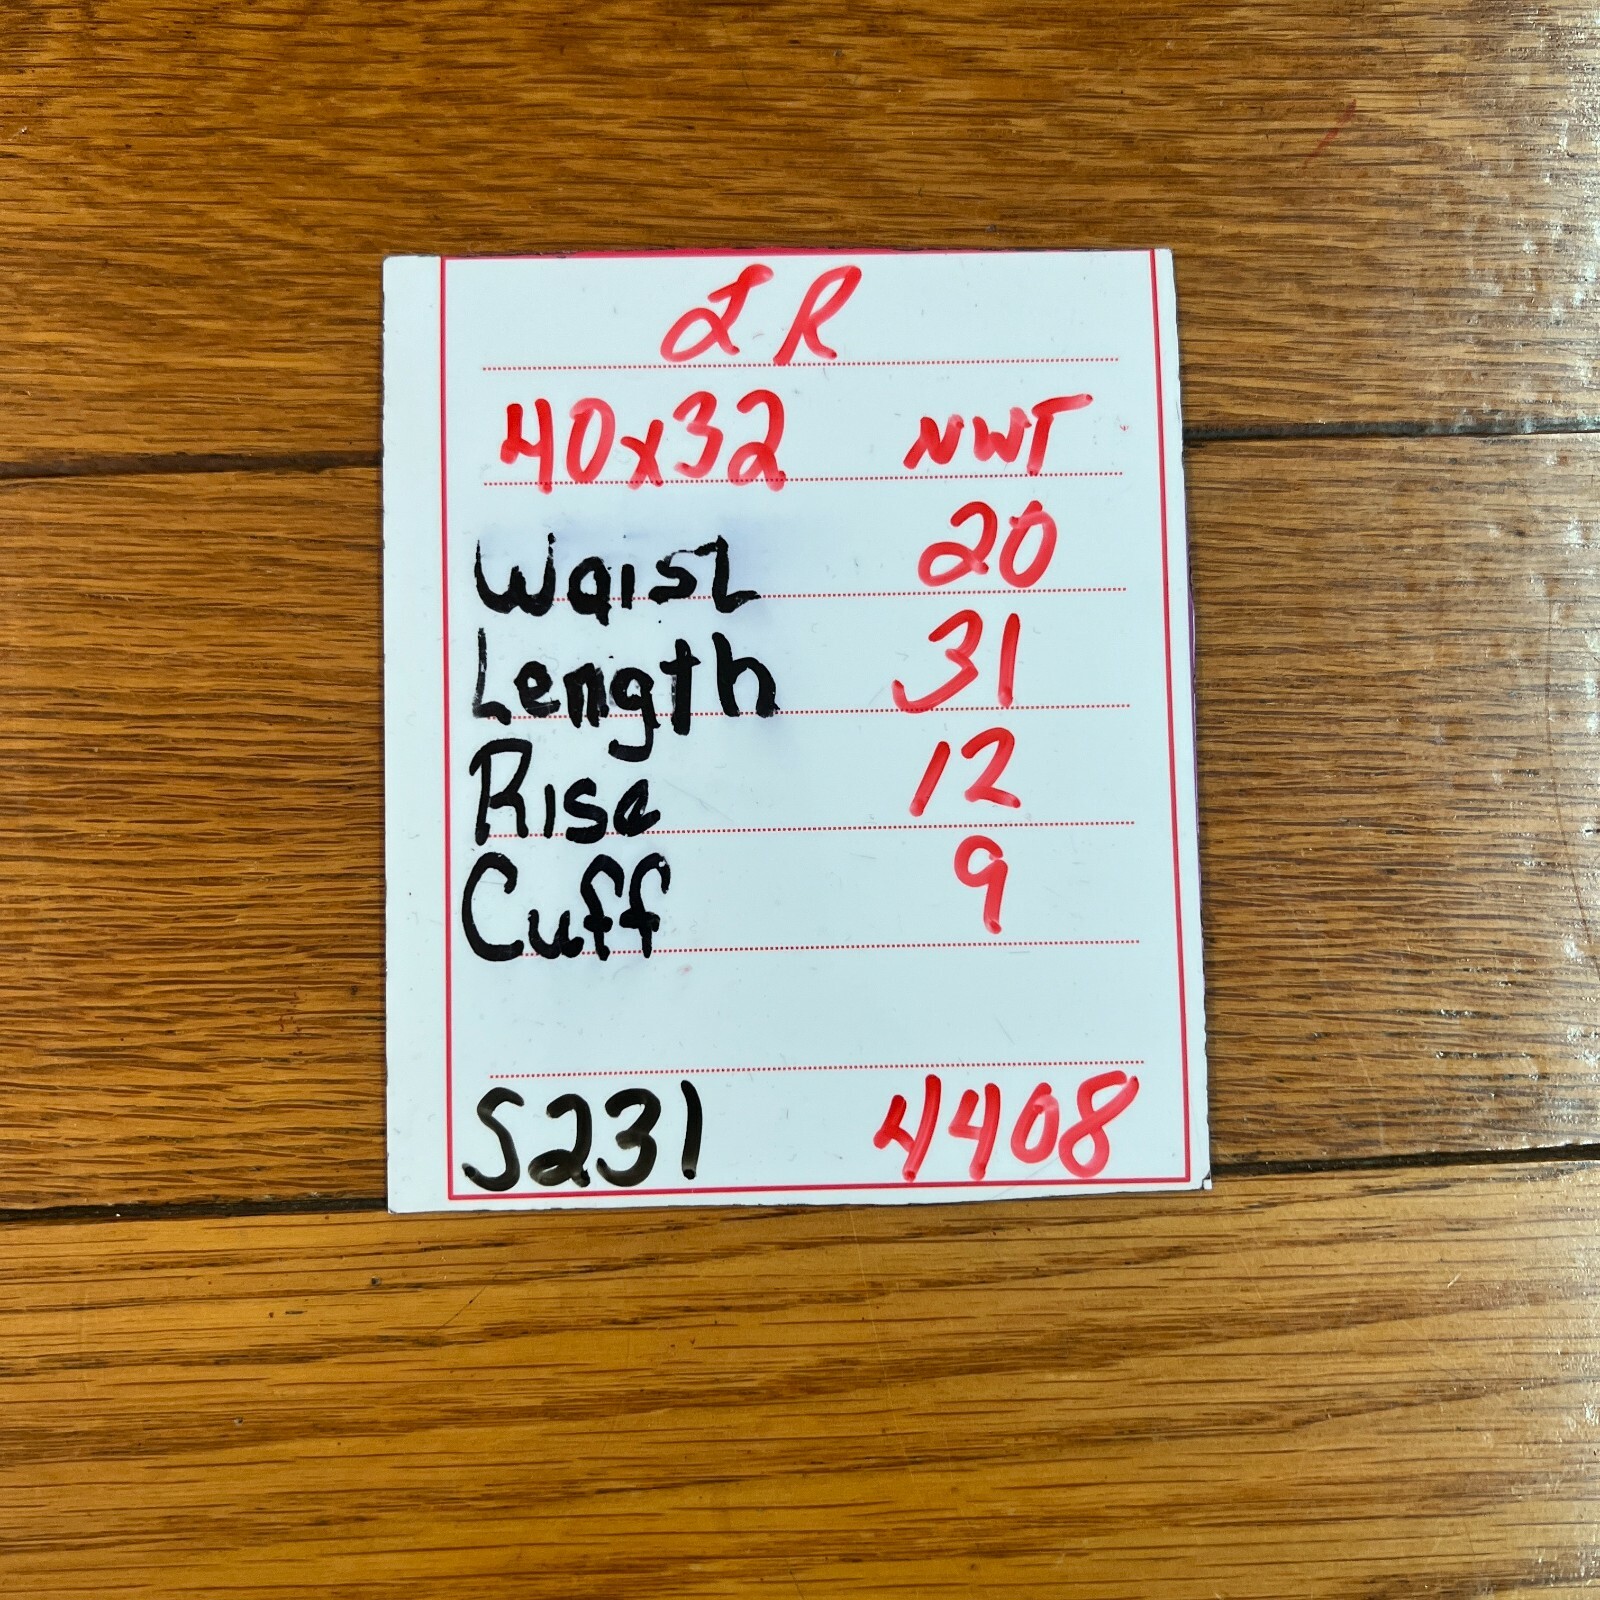 LR
40x32 NWT
Waist 20
Length 31
Rise 12
Cuff 9
S231 4408